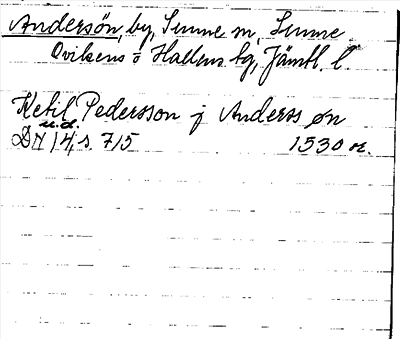 Andersön, by, Sunne sn, Sunne
Ovikens o Hallens tg, Jämtl. l.
Ketil Pedersson j Anderss øn
u.d.
DN 14, s. 715 1530 or.